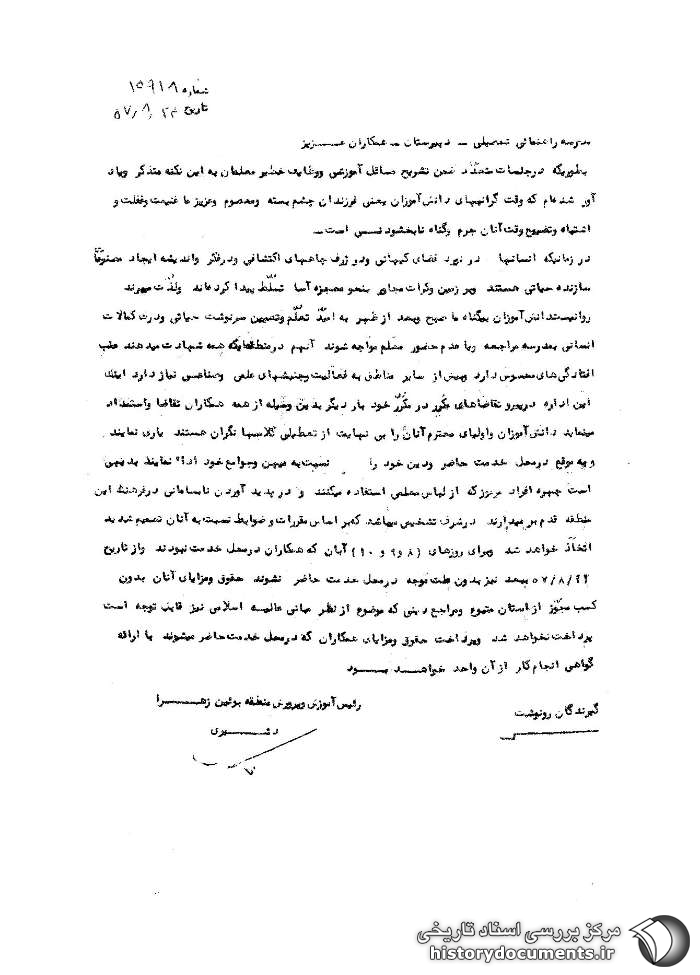 شماره ۱۵۹۱۸
تاریخ ۵۷/۸/۲۳
مدرسه راهنمائی تحصیلی – دبیرستان – همکاران عـــزیز
بطوریکه در جلسات متعدّد ضمن تشریح مسائل آموزشی ووظایف خطیر معلمان به این نکته متذکر ویاد
آور شده‌ام که وقت گرانبهای دانش‌آموزان یعنی فرزندان چشم بسته ومعصوم وعزیز ما غنیمت وغفلت و
اشتباه وتضییع وقت آنان جرم وگناه نابخشودنی است –
در زمانیکه انسانها در نبرد فضای کیهانی ودر ژرف چاههای اکتشافی ودرفکر واندیشه ایجاد مصنوعاً
سازنده حیاتی هستند وبر زمین وکرات مجاور بنحو معجزه آسا تسلّط پیدا کرده‌اند ولذّت میبرند
روانیست دانش‌آموزان بیگناه ما صبح وبعد از ظهر به امیّد تعلّم وتعیین سرنوشت حیاتی ودرک کمالات
انسانی بمدرسه مراجعه وبا عدم حضور معلم مواجه شوند آنهم در منطقه‌ایکه همه شهادت میدهند عقب
افتادگی‌های محسوس دارد وبیش از سایر مناطق به فعالیت وجنبشهای علمی وصناعی نیاز دارد اینک
این اداره درپیرو تقاضاهای مکرر در مکّرر خود بار دیگر بدین وسیله از همه همکاران تقاضا واستمداد
مینماید دانش‌آموزان واولیای محترم آنان را بی نهایت از تعطیلی کلاسها نگران هستند یاری نمایند
و به موقع درمحل خدمت حاضر ودین خود را نسبت به میهن وجوامع خود اداء نمایند بدیهی
است چهره افراد مرموز که از لباس معلمی استفاده میکنند و در پدید آوردن نابسامانی درفرهنگ این
منطقه قدم بر میدارند درشرف تشخیص میباشد که بر اساس مقررات و ضوابط نسبت به آنان تصمیم شدید
اتخّاذ خواهد شد وبرای روزهای (۸ و ۹ و ۱۰) آبان که همکاران درمحل خدمت نبودند واز تاریخ
۵۷/۸/۲۳ ببعد نیز بدون علت موجه درمحل خدمت حاضر نشوند حقوق ومزایای آنان بدون
کسب مجّوز از استان متبوع ومراجع دینی که موضوع از نظر مبانی عالیه اسلامی نیز قابل توجه است
پرداخت نخواهد شد وپرداخت حقوق ومزایای همکاران که درمحل خدمت حاضر میشوند با ارائه
گواهی انجام کار از آن واحد خواهــد بــود
رئیس آموزش وپرورش منطقه بوئین زهــرا
گیرندگان رونوشت
مرکز بررسی اسناد تاریخی
historydocuments.ir